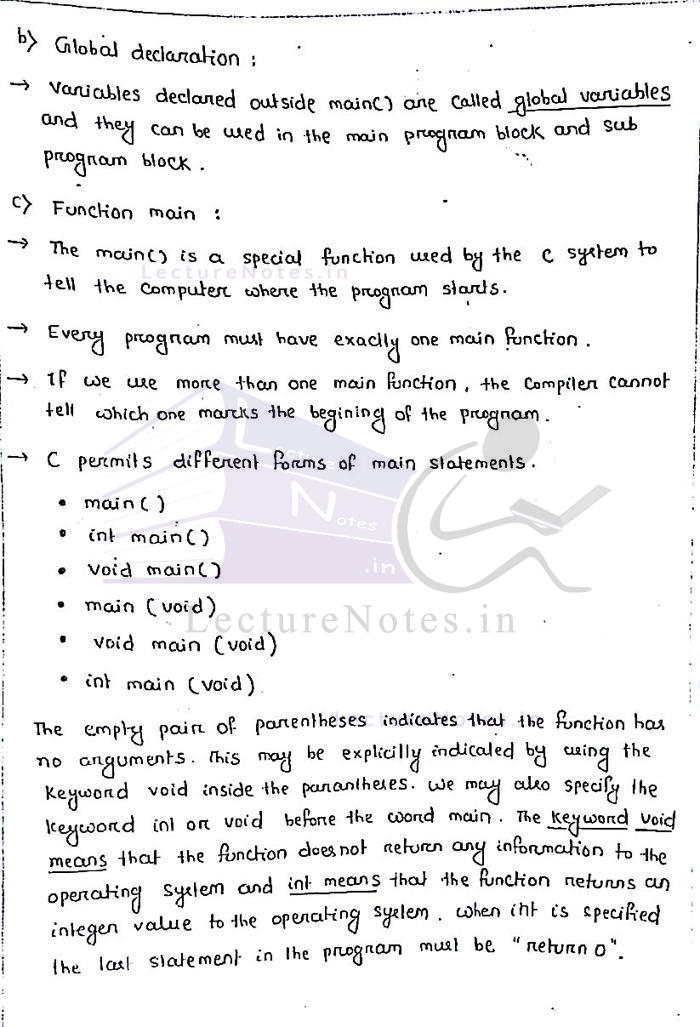 b) Global declaration :
→ Variables declared outside main() are called global variables
and they can be used in the main program block and sub
program block .
c) Function main :
→ The main() is a special function used by the C system to
LectureNotes.in
tell the computer where the program starts.
→ Every program must have exactly one main function .
→ If we use more than one main function , the compiler cannot
tell which one marks the begining of the program .
→ C permits different forms of main statements .
Lecture
Notes
.in
• main ( )
• int main()
• void main()
• main (void)
LectureNotes.in
• void main (void)
• int main (void)
The empty pair of parentheses indicates that the function has
no arguments. This may be explicitly indicated by using the
keyword void inside the parantheses. We may also specify the
keyword int or void before the word main . The keyword void
means that the function does not return any information to the
operating system and int means that the function returns an
integer value to the operating system . When int is specified
the last statement in the program must be "return 0".